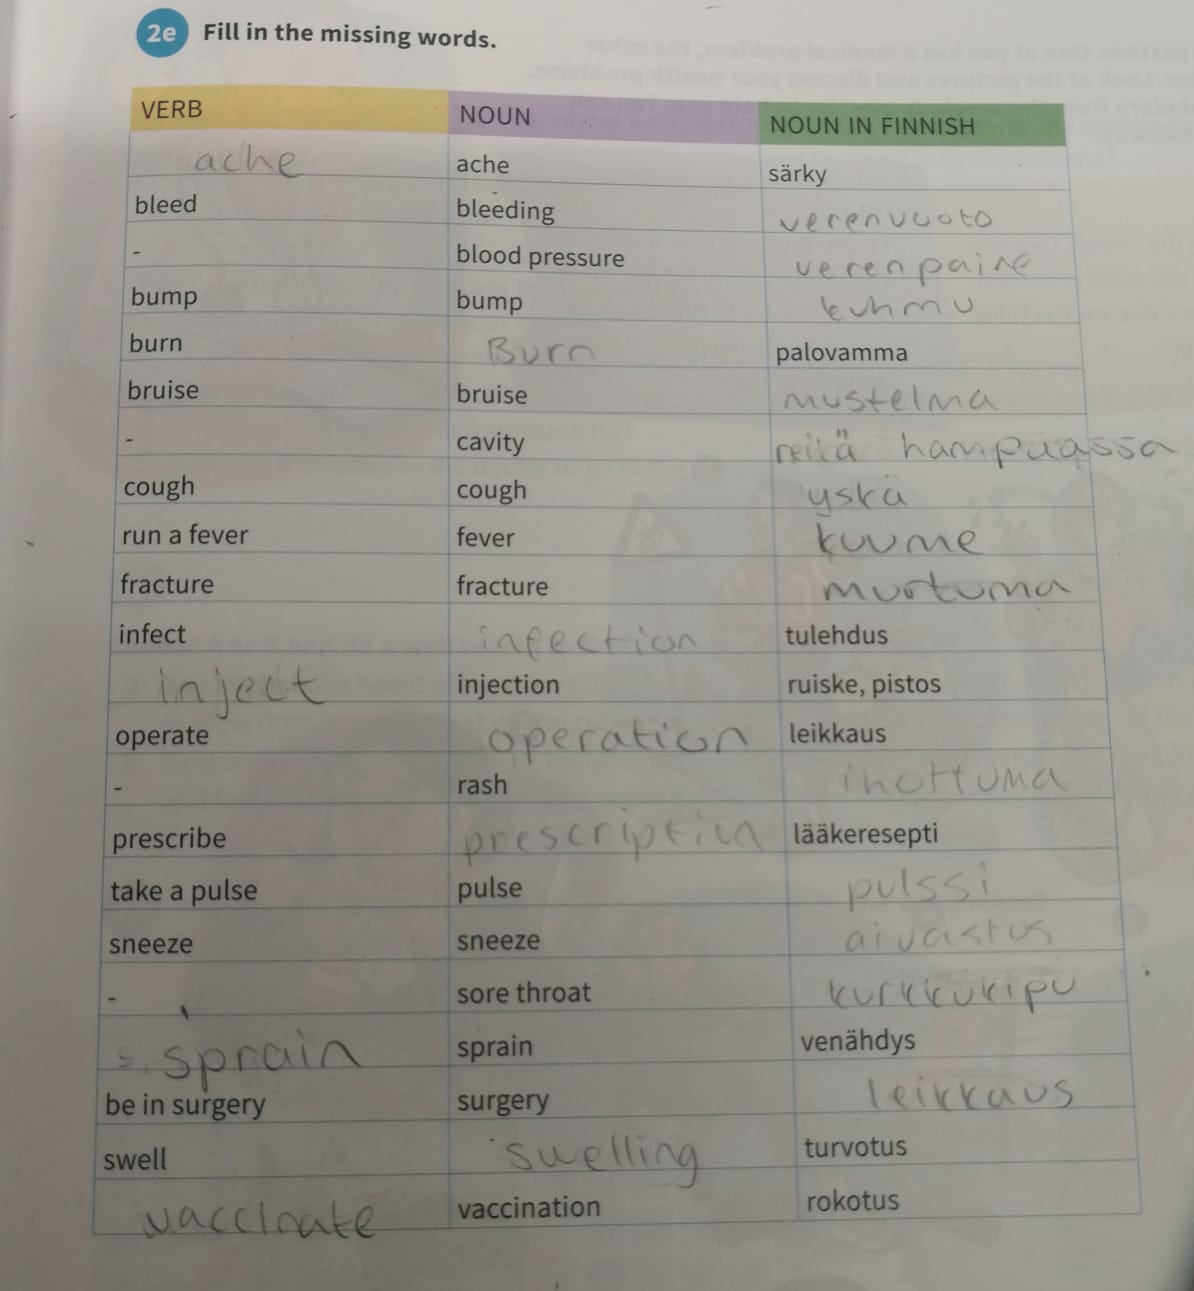 2e Fill in the missing words.
VERB NOUN NOUN IN FINNISH
ache ache särky
bleed bleeding verenvuoto
- blood pressure verenpaine
bump bump kuhmu
burn Burn palovamma
bruise bruise mustelma
- cavity reikä hampaassa
cough cough yskä
run a fever fever kuume
fracture fracture murtuma
infect infection tulehdus
inject injection ruiske, pistos
operate operation leikkaus
- rash ihottuma
prescribe prescription lääkeresepti
take a pulse pulse pulssi
sneeze sneeze aivastus
- sore throat kurkkukipu
sprain sprain venähdys
be in surgery surgery leikkaus
swell swelling turvotus
vaccinate vaccination rokotus